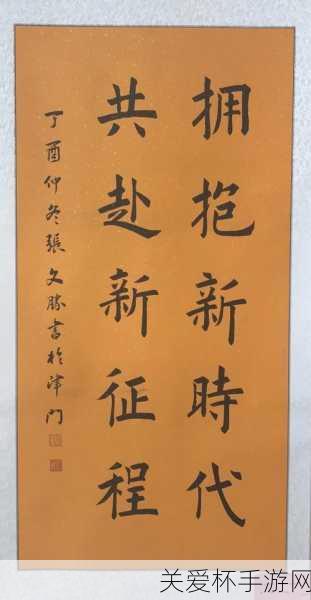 拥抱新時代
共赴新征程
丁酉仲冬張文勝書於津门
关爱杯手游网